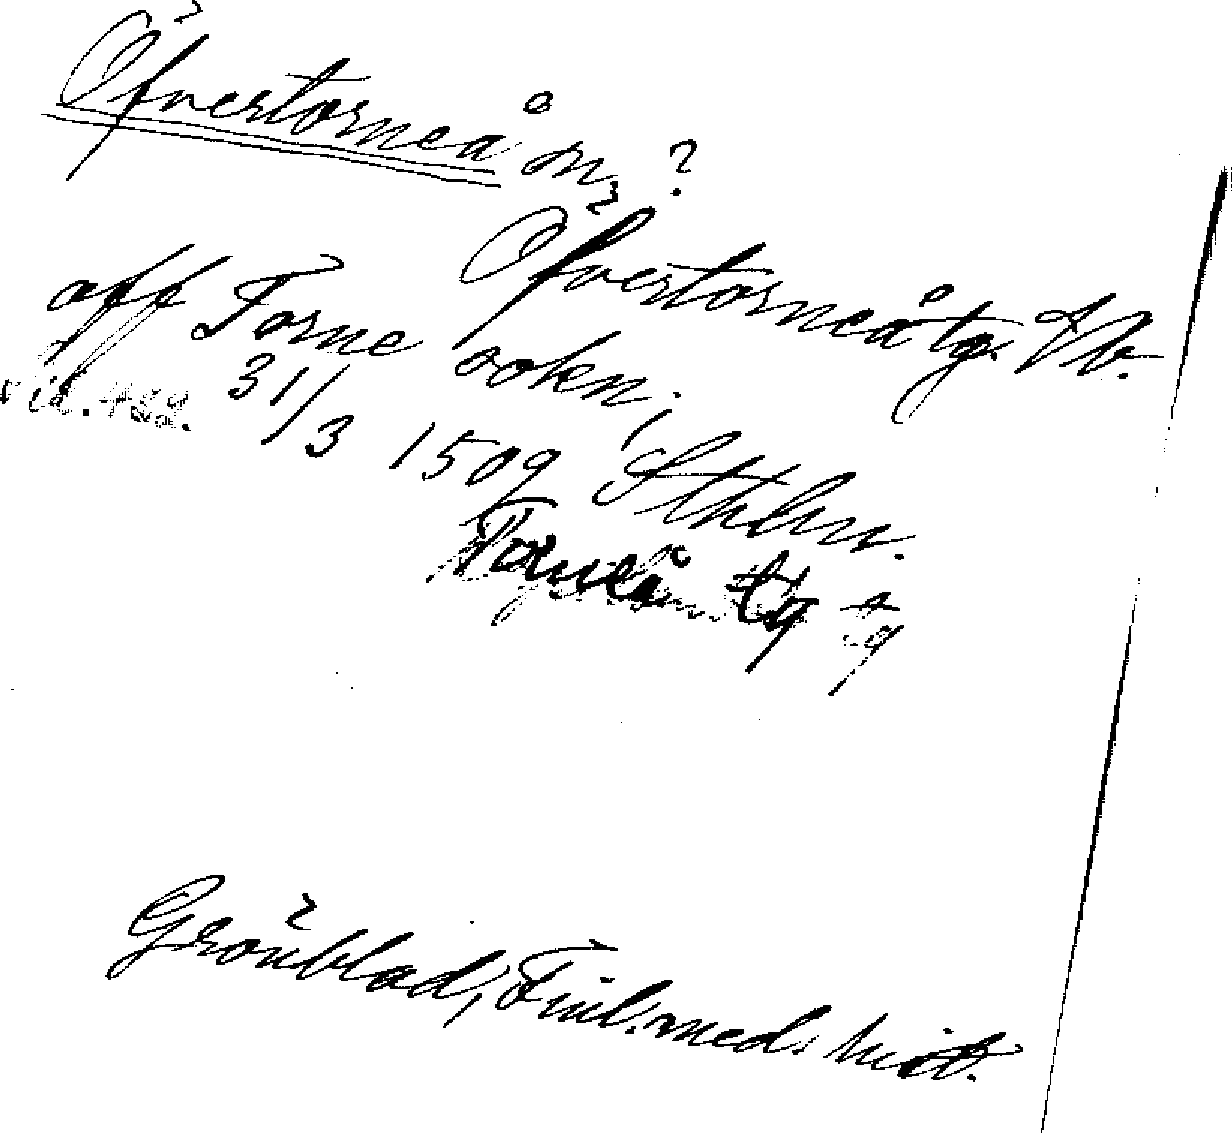 Öfvertorneå sn ?
Öfvertorneå tg. Vb.
aff Torne sokn,
31/3 1509 Sthlm.
Torneå tg tg
Grönblad, Finl. med. hist.